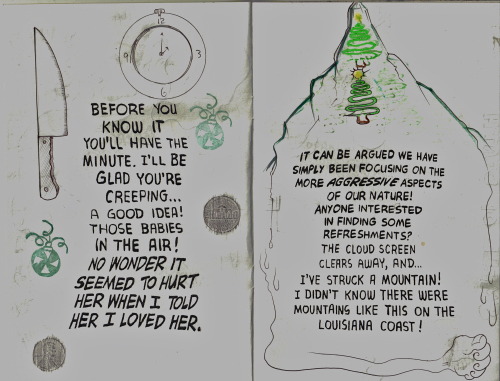 12
9
3
6
BEFORE YOU
KNOW IT
YOU'LL HAVE THE
MINUTE. I'LL BE
GLAD YOU'RE
CREEPING...
A GOOD IDEA!
THOSE BABIES
IN THE AIR!
NO WONDER IT
SEEMED TO HURT
HER WHEN I TOLD
HER I LOVED HER.
IT CAN BE ARGUED WE HAVE
SIMPLY BEEN FOCUSING ON THE
MORE AGGRESSIVE ASPECTS
OF OUR NATURE!
ANYONE INTERESTED
IN FINDING SOME
REFRESHMENTS?
THE CLOUD SCREEN
CLEARS AWAY, AND...
I'VE STRUCK A MOUNTAIN!
I DIDN'T KNOW THERE WERE
MOUNTAINS LIKE THIS ON THE
LOUISIANA COAST!